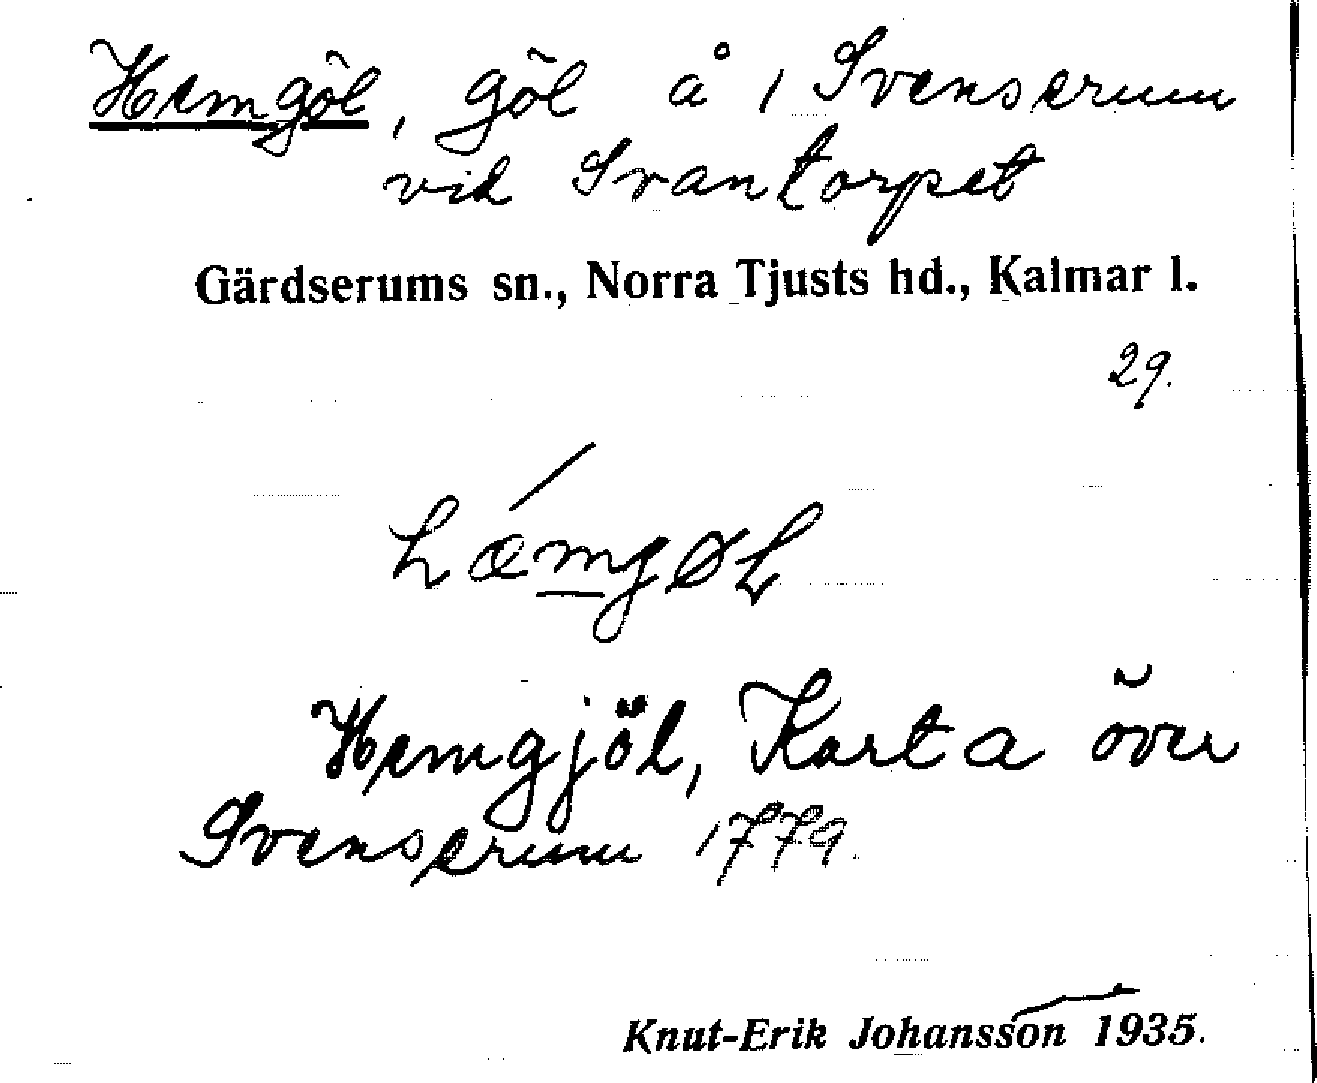 Hemgöl, göl å 1 Svenserum
vid Svantorpet
Gärdserums sn., Norra Tjusts hd., Kalmar l.
29.
hæmgøL
Hemgjöl, Karta över
Svenserum 1779.
Knut-Erik Johansson 1935.